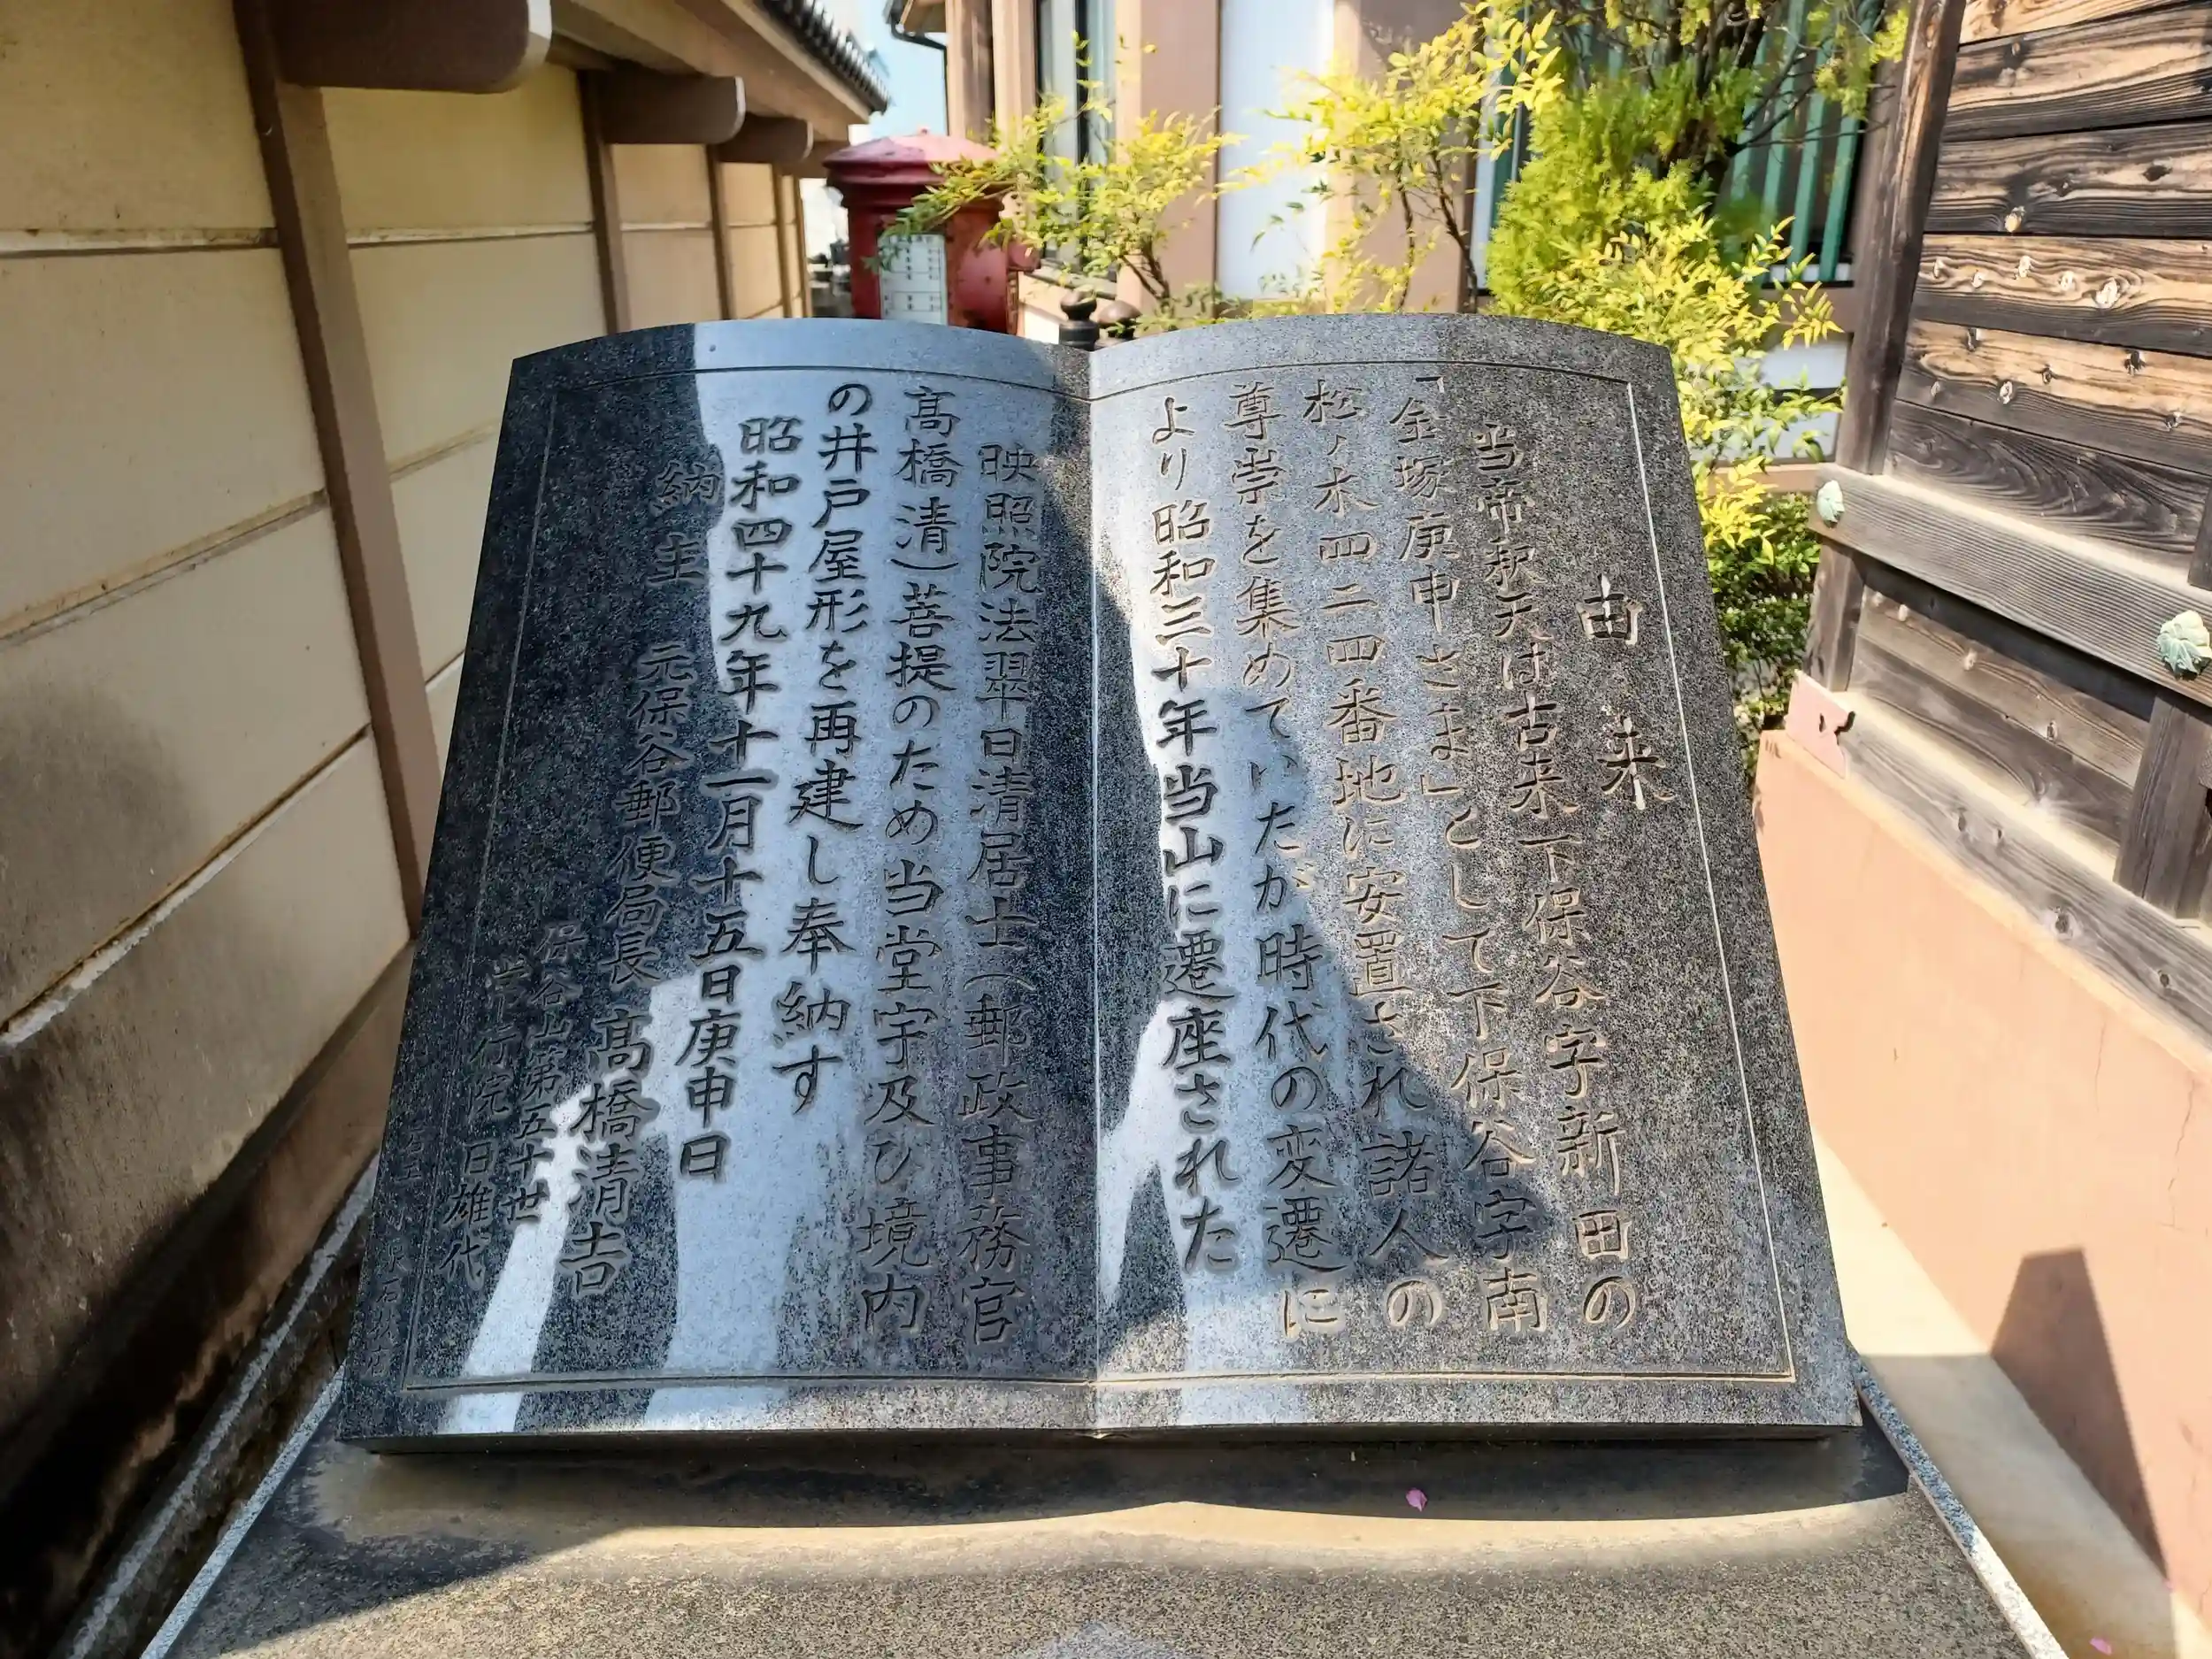 由来
当帝釈天は古来下保谷字新田の
「金塚庚申さま」として下保谷字南
松ノ木四二四番地に安置され諸人の
尊崇を集めていたが時代の変遷に
より昭和三十年当山に遷座された
映照院法翠日清居士(郵政事務官
髙橋清)菩提のため当堂宇及び境内
の井戸屋形を再建し奉納す
昭和四十九年十一月十五日庚申日
納主 元保谷郵便局長 髙橋清吉
保谷山第五十世
常行院日雄代